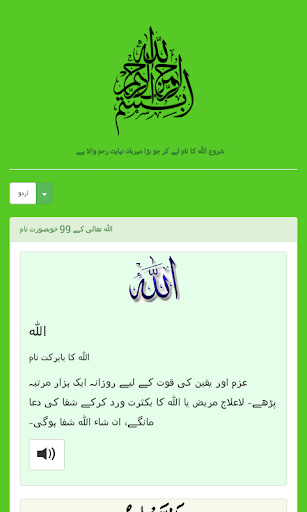 بسم الله الرحمن الرحيم
شروع اللہ کا نام لے کر جو بڑا مہربان نہایت رحم والا ہے
اردو
اللہ تعالی کے 99 خوبصورت نام
الله
اللہ
اللہ کا بابرکت نام
عزم اور یقین کی قوت کے لیے روزانہ ایک ہزار مرتبہ
پڑھے۔ لاعلاج مریض یا اللہ کا بکثرت ورد کرکے شفا کی دعا
مانگے، ان شاء اللہ شفا ہوگی۔